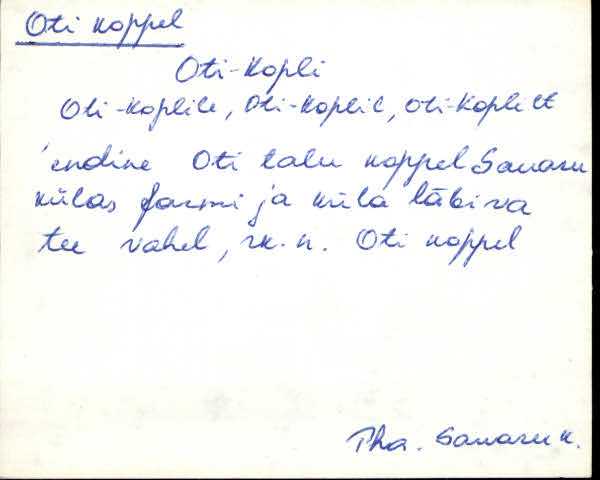 Oti koppel
Oti-kopli
Oti-koplile, Oti-koplil, Oti-koplilt
endine Oti talu koppel Sauaru
külas farmi ja küla läbiva
tee vahel, rk. n. Oti koppel
Pha. Sauaru k.